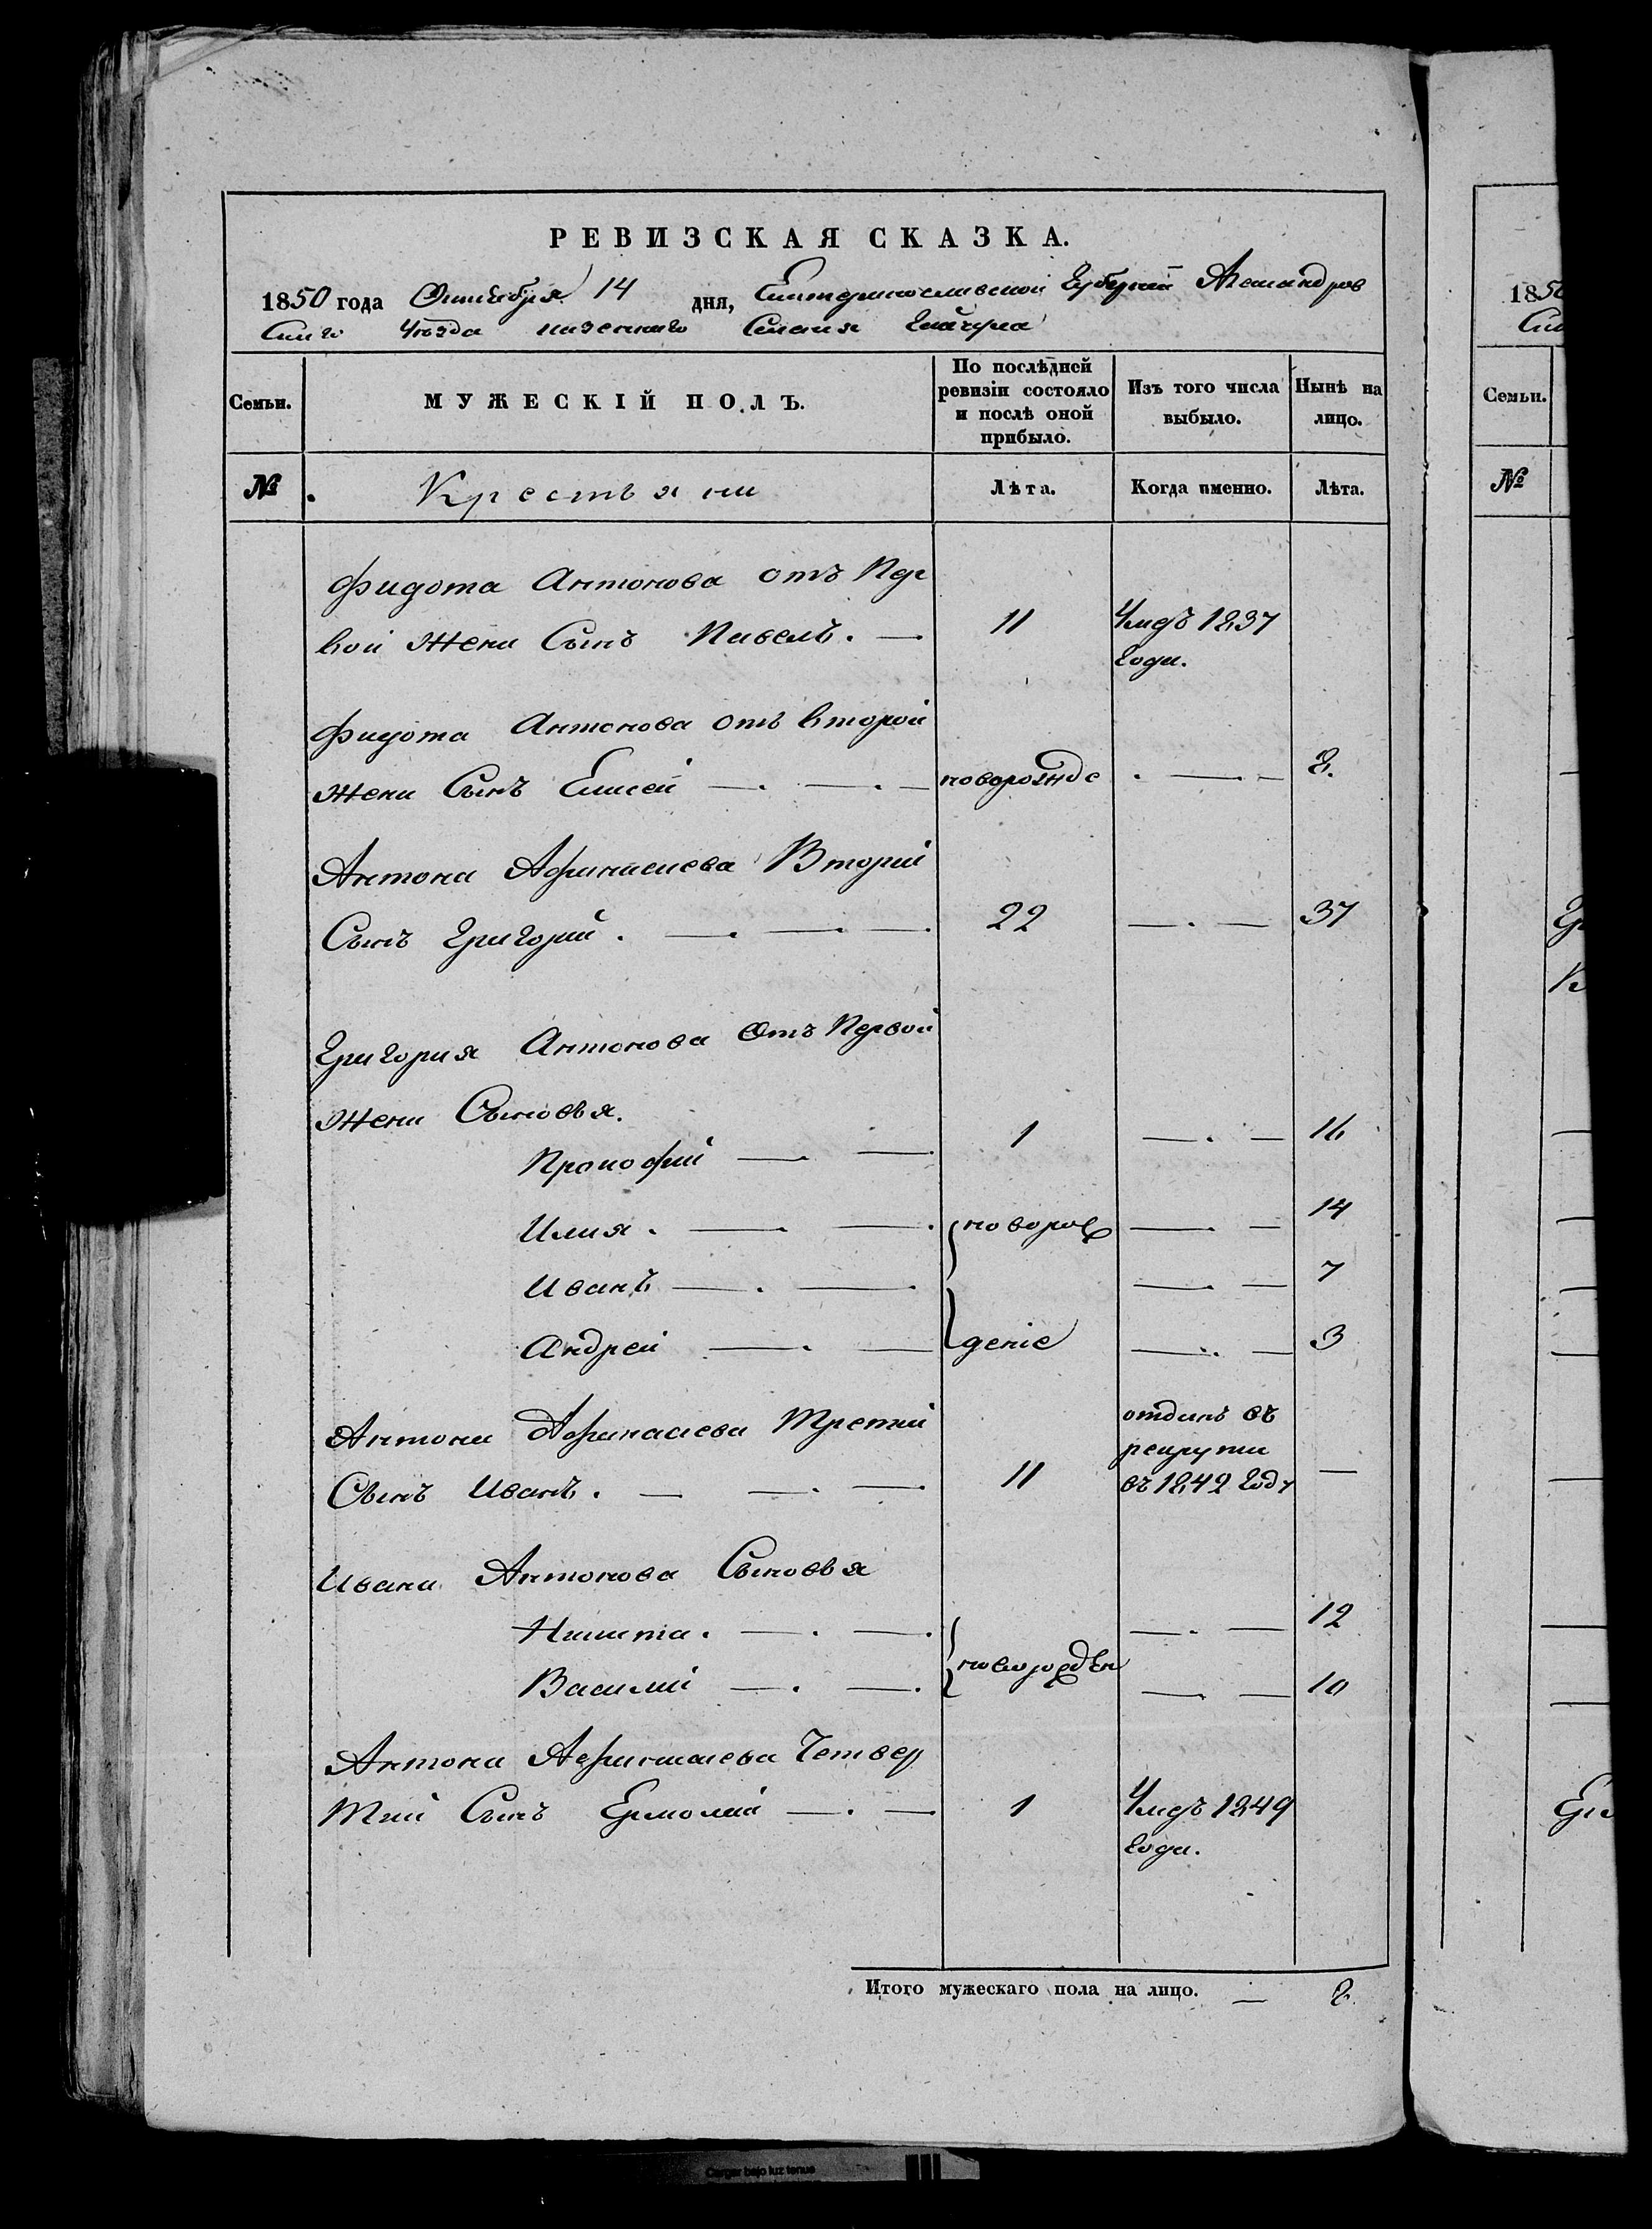 РЕВИЗСКАЯ СКАЗКА.
1850 года Октября 14 дня, Екатеринославской Губерніи Александров
скаго Уѣзда казеннаго Селенія Гайчула
Семьи.
МУЖЕСКІЙ ПОЛЪ.
По послѣдней ревизіи состояло и послѣ оной прибыло.
Изъ того числа выбыло.
Нынѣ на лицо.
№
Крестьяни
Лѣта.
Когда именно.
Лѣта.
Фидота Антонова отъ Пер
вой жени Сынъ Павелъ. — 11 Умеръ 1837
Года.
Фидота Антонова отъ второй
жени Сынъ Елисей — новорожде — 8.
Антона Афанасиева Вторий
Сынъ Григорий. — 22 — 37
Григория Антонова Отъ Первой
жени Сыновья.
Прокофий — 1 — 16
Илия. — новорож — 14
Иванъ — — 7
Андрей — деніе — 3
Антона Афанасиева Третий отданъ въ
рекруты
Сынъ Иванъ. — 11 въ 1842 Году —
Ивана Антонова Сыновья
Никита. — — 12
новорожден
Василий — — 10
Антона Афанасиева Четвер
тий Сынъ Ермолай — 1 Умеръ 1849
Года.
Итого мужескаго пола на лицо. — 8.
1850
Ски
Семьи.
№
Гр
Ер
Cargar bajo luz tenue